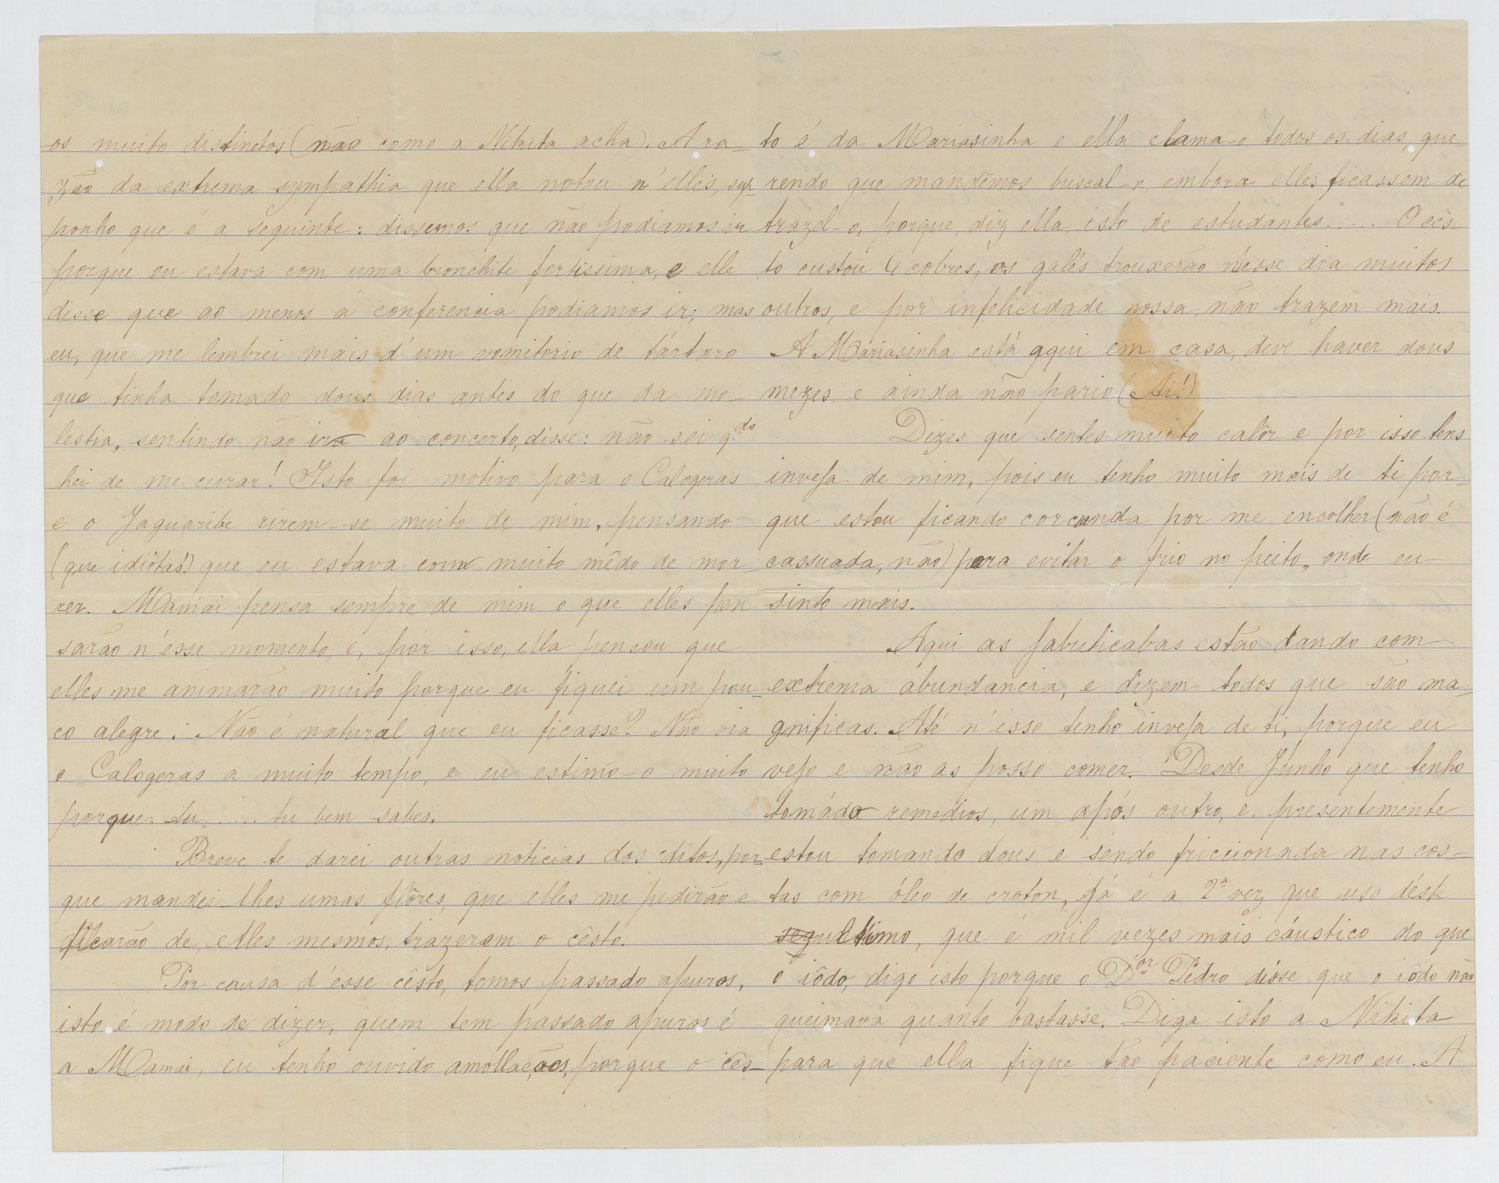 os muito distinctos (não como a Nhita acha). A ra-
zão da extrema sympathia que ella notou n'elles, sup-
ponho que é a seguinte: dissemos que não podiamos ir
porque eu estava com uma bronchite fortissima, e elle
disse que ao menos á conferencia podiamos ir, mas
eu, que me lembrei mais d'um vomitorio de tártaro
que tinha tomado dous dias antes do que da mo-
lestia, sentindo não ir ao concerto, disse: não sei q.do
hei de me curar! Isto foi motivo para o Calogeras
e o Jaguaribe rirem-se muito de mim, pensando
(que idiótas!) que eu estava com muito mêdo de mor-
rer. Mamai pensa sempre de mim o que elles pen
sarão n'esse momento, e, por isso, ella pensou que
elles me animarão muito porque eu fiquei um pou-
co alegre. Não é natural que eu ficasse? Não via
o Calogeras a muito tempo, e eu estimo-o muito
porque tu..... tu bem sabes.
Breve te darei outras noticias dos ditos, por-
que mandei-lhes umas flôres, que elles me pedirão e
ficarão de, elles mesmos, trazerem o cêsto.
Por causa d'esse cêsto, temos passado apuros,
isto é modo de dizer, quem tem passado apuros é
a Mamai, eu tenho ouvido amollações, porque o cês-
to é da Mariasinha e ella clama-o todos os dias, que-
rendo que mandemos buscal-o, embora elles ficassem de
trazel-o, porque, diz ella, isto de estudantes..... O cês-
to custou 4 cobres, os galés trouxerão n'esse dia muitos
outros, e por infelicidade nossa, não trazem mais.
A Mariasinha está aqui em casa, deve haver dous
mezes, e ainda não pario (Ai!)
Dizes que sentes muito calôr e por isso tens
inveja de mim, pois eu tenho muito mais de ti por-
que estou ficando corcunda por me encolher (não é
cassuada, não) para evitar o frio no peito, onde eu
sinto mais.
Aqui as jabuticabas estão dando com
extrema abundancia, e dizem todos que são ma-
gnificas. Até n'isso tenho inveja de ti, porque eu
vejo e não as posso comer. Desde Junho que tenho
tomádo remedios, um após outro, e presentemente
estou tomando dous e sendo friccionada nas cos-
tas com óleo de croton, já é a 2ª vez que uso déste
ultimo, que é mil vezes mais cáustico do que
o iôdo, digo isto porque o Dor Pedro disse que o iôdo não
queimava quanto bastasse. Diga isto a Nhita
para que ella fique tão paciente como eu. A